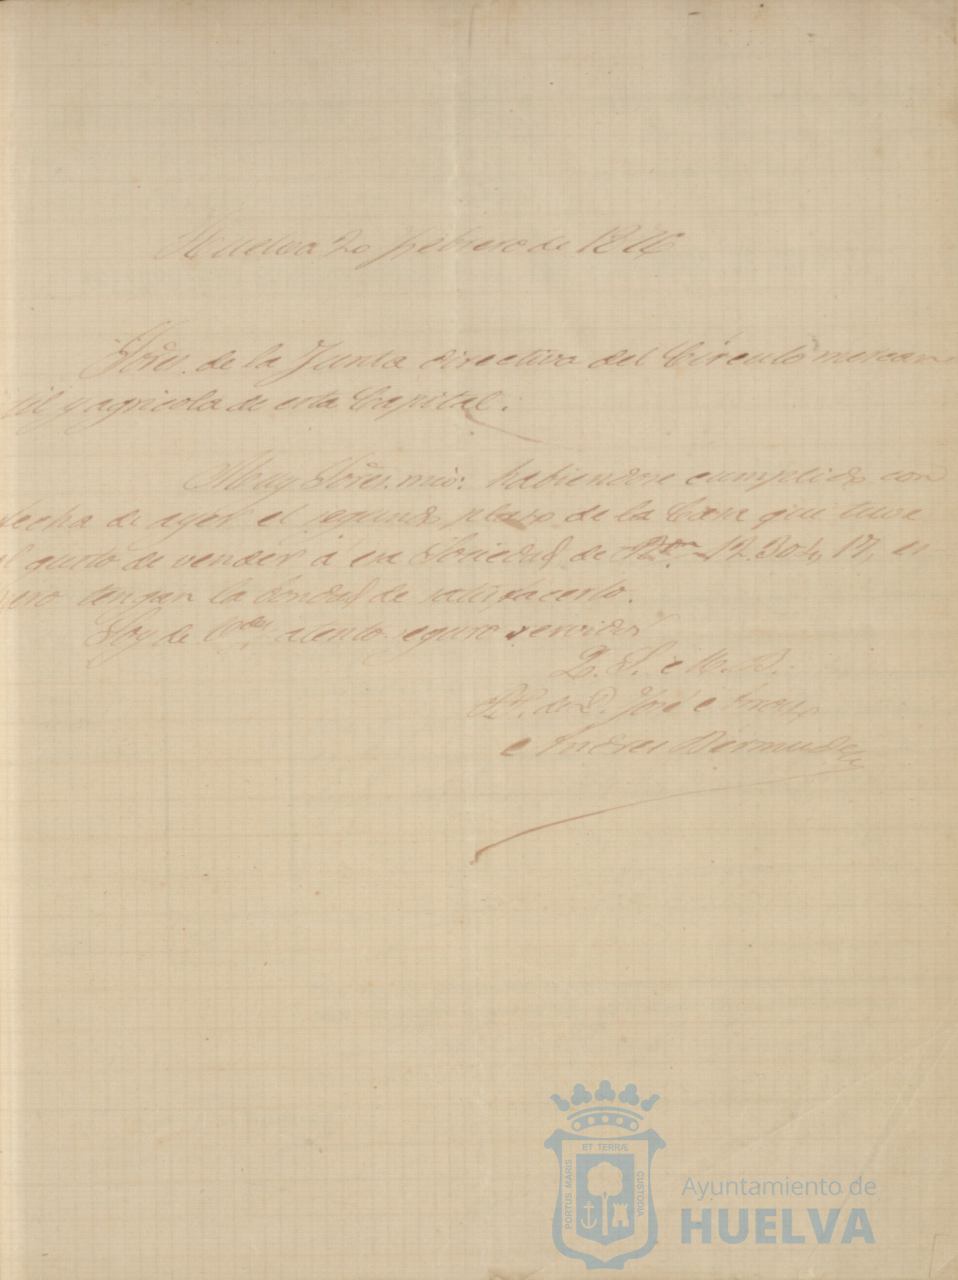 Huelva 20 Febrero de 1876
Sōres. de la Junta directiva del Círculo mercan
til y agricola de esta Capital.
Muy Sōres. mios: habiendose cumplido con
fecha de ayer el segundo plazo de la Casa que tuve
el gusto de vender á esa Sociedad de 12.304, 17, es
pero tengan la bondad de satisfacerlo.
Soy de Vdes. atento seguro servidor
Q. S. M. B.
P. P. de D. José
Andres Bermudez
ET TERRÆ
PORTUS MARIS
CUSTODIA
Ayuntamiento de
HUELVA